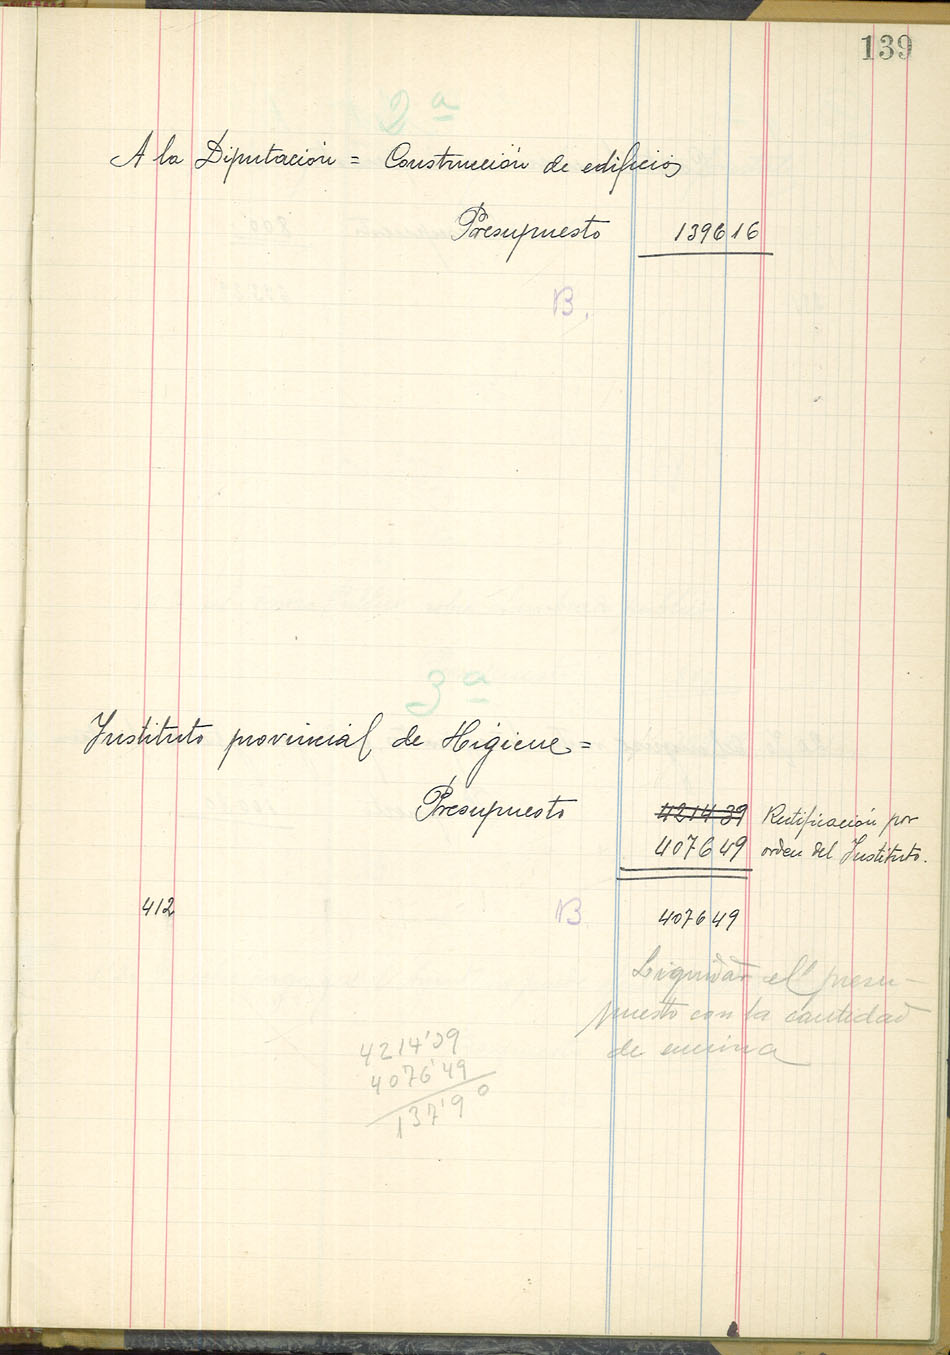 139
2ª
A la Diputación = Construcción de edificios
Presupuesto 1396 16
B.
3ª
Instituto provincial de Higiene =
Presupuesto 4214 39 Rectificación por
4076 49 orden del Instituto.
412 B 4076 49
Liquidar el presu-
puesto con la cantidad
de encima
4214'39
4076'49
137'90